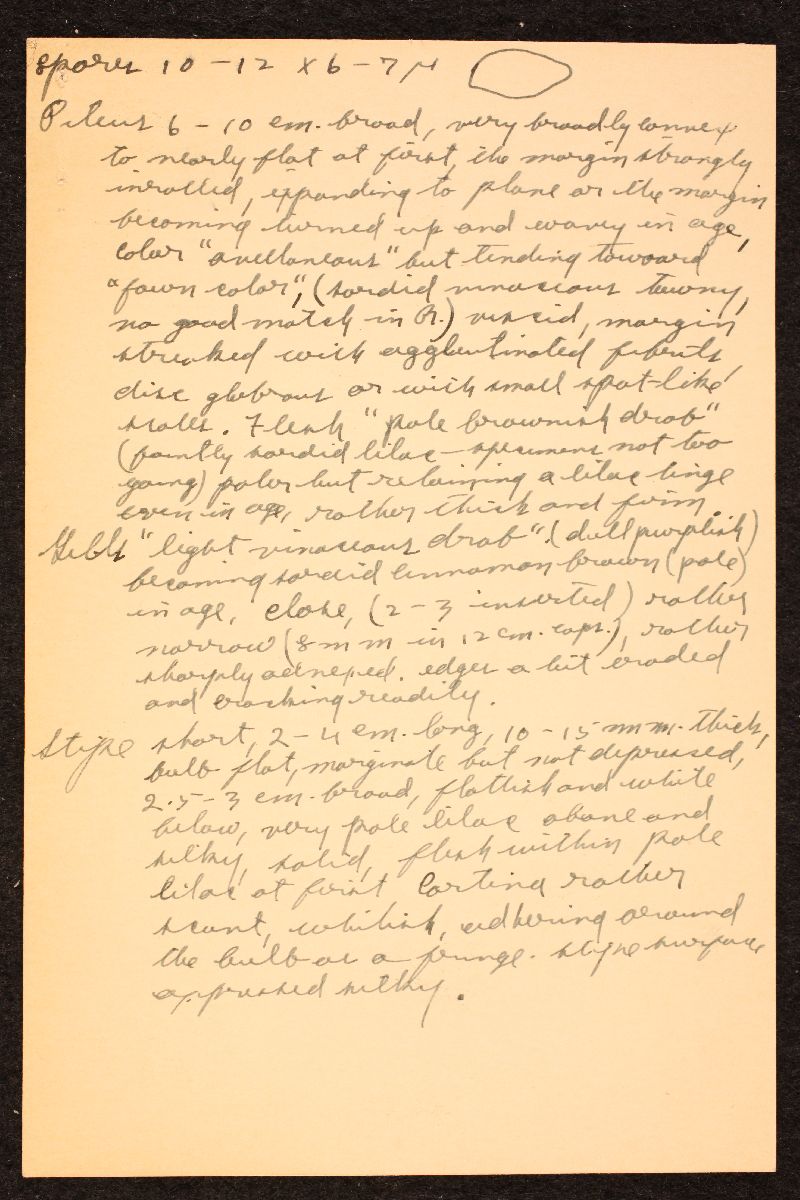 spores 10-12 x 6-7 μ
Pileus 6-10 cm. broad, very broadly convex
to nearly flat at first, the margin strongly
inrolled, expanding to plane or the margin
becoming turned up and wavy in age,
color "avellaneous" but tending toward
"fawn color", (sordid vinaceous tawny,
no good match in R.) viscid, margin
streaked with agglutinated fibrils,
disc glabrous or with small spot-like
scales. Flesh "pale brownish drab"
(faintly sordid lilac - specimens not too
young) paler but retaining a lilac tinge
even in age, rather thick and firm
Gills "light vinaceous drab". (dull purplish)
becoming sordid cinnamon brown (pale)
in age, close, (2-3 inserted) rather
narrow (8 mm in 12 cm. caps.), rather
sharply adnexed. edges a bit eroded
and cracking readily.
Stipe short, 2-4 cm. long, 10-15 mm. thick,
bulb flat, marginate but not depressed,
2.5-3 cm. broad, flattish and white
below, very pale lilac above and
silky, solid, flesh within pale
lilac at first Cortina rather
scant, whitish, adhering around
the bulb as a fringe. stipe surface
appressed silky.